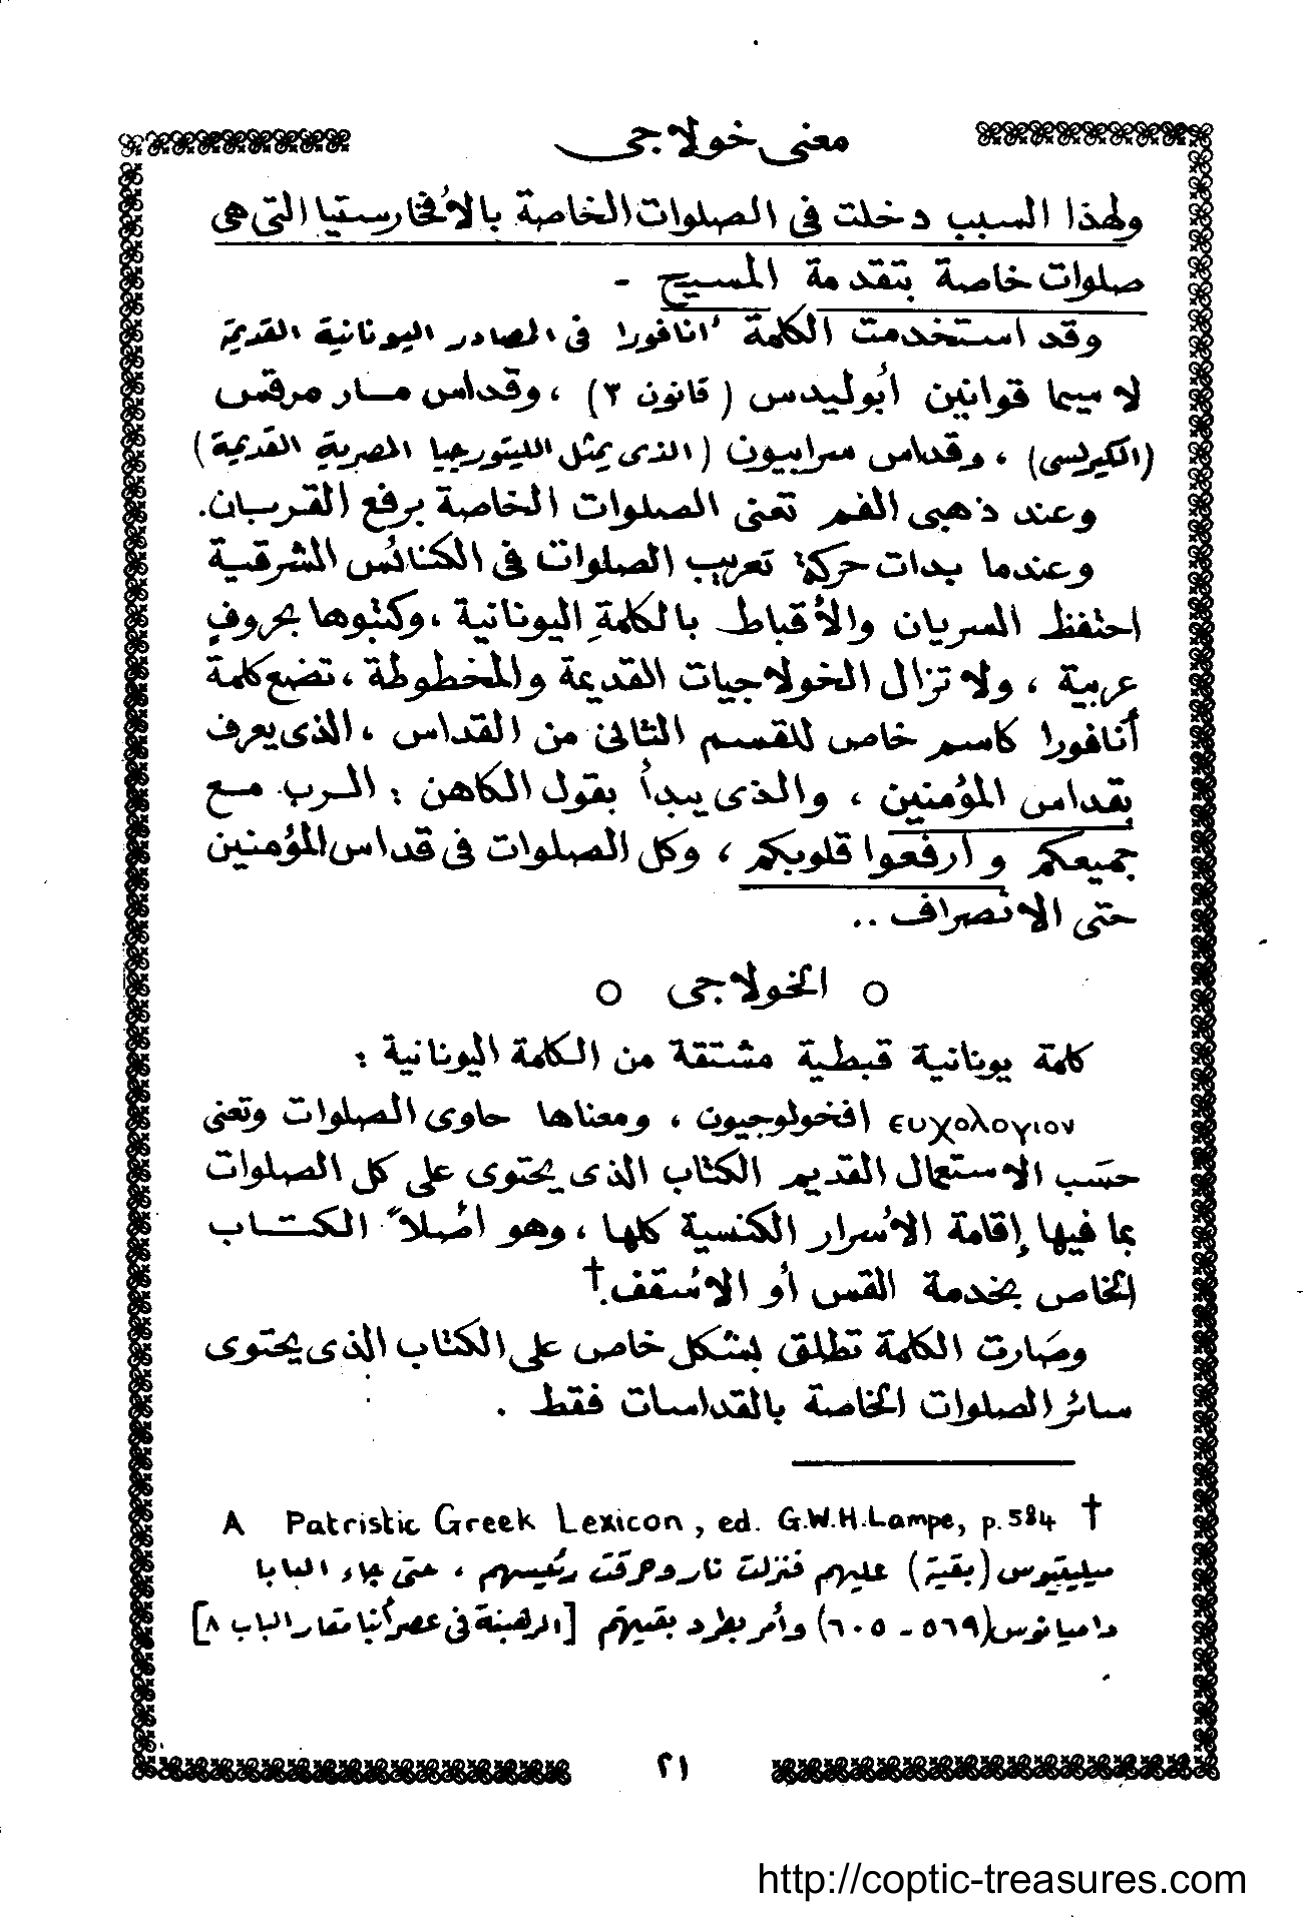 معنى خولاجى
ولهذا السبب دخلت فى الصلوات الخاصة بالأفخارستيا التى هى
صلوات خاصة بتقدمة المسيح -
وقد استخدمت الكلمة "انافورا فى المصادر اليونانية القديمة
لا سيما قوانين أبوليدس (قانون ٣) ، وقداس مار مرقس
(الكيرلسى) ، وقداس سرابيون (الذى يمثل الليتورجيا المصرية القديمة)
وعند ذهبى الفم تعنى الصلوات الخاصة برفع القربان.
وعندما بدات حركة تعريب الصلوات فى الكنائس الشرقية
احتفظ السريان والأقباط بالكلمةِ اليونانية ، وكتبوها بحروفٍ
عربية ، ولا تزال الخولاجيات القديمة والمخطوطة ، تضع كلمة
أنافورا كاسم خاص للقسم الثانى من القداس ، الذى يعرف
بقداس المؤمنين ، والذى يبدأ بقول الكاهن : الرب مع
جميعكم و ارفعوا قلوبكم ، وكل الصلوات فى قداس المؤمنين
حتى الانصراف ..
○ الخولاجى ○
كلمة يونانية قبطية مشتقة من الكلمة اليونانية :
ευχολογιον افخولوجيون ، ومعناها حاوى الصلوات وتعنى
حسَب الاستعمال القديم الكتاب الذى يحتوى على كل الصلوات
بما فيها إقامة الأسرار الكنسية كلها ، وهو أصلاً الكتاب
الخاص بخدمة القس أو الأسقف.†
وصَارت الكلمة تطلق بشكل خاص على الكتاب الذى يحتوى
سائر الصلوات الخاصة بالقداسات فقط .
A Patristic Greek Lexicon, ed. G.W.H.Lampe, p.584 †
ميليتيوس (بقية) عليهم فنزلت نار وحرقت رئيسهم ، حتى جاء البابا
داميانوس (٥٦٩ - ٦٠٥) وأمر بطرد بقيتهم [الرهبنة فى عصر أنبا مقار الباب ٨]
٢١
http://coptic-treasures.com